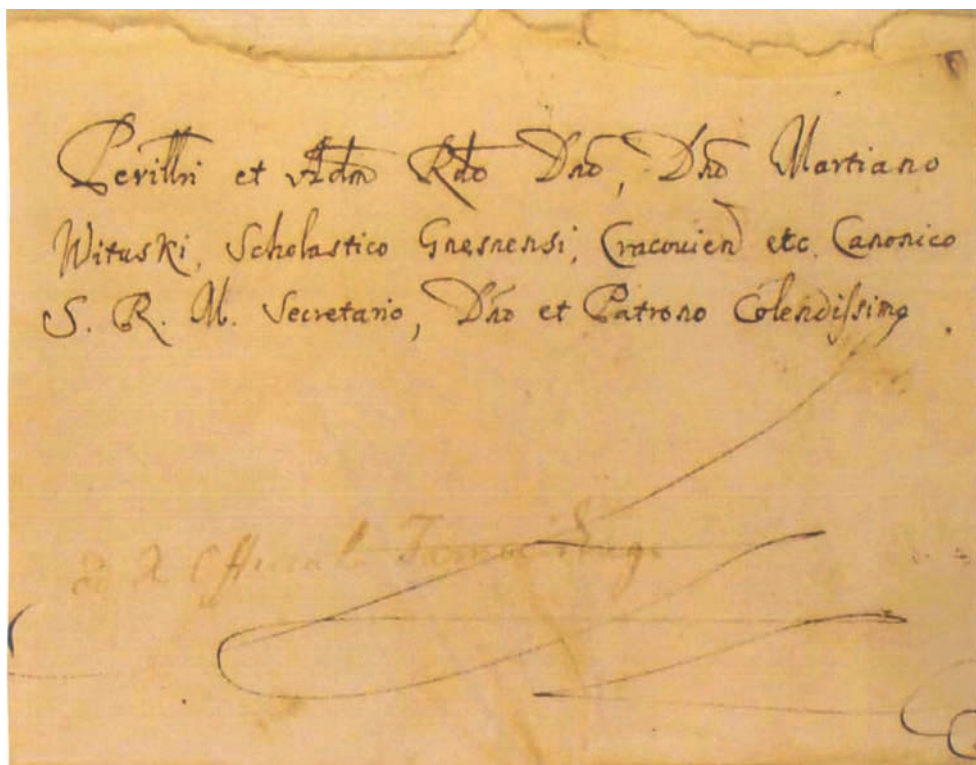 Perillri et Adm Rdo Dno, Dno Martiano
Wituski, Scholastico Gnesnensi, Cracouien etc. Canonico
S. R. M. Secretario, Dno et Patrono Colendissimo.